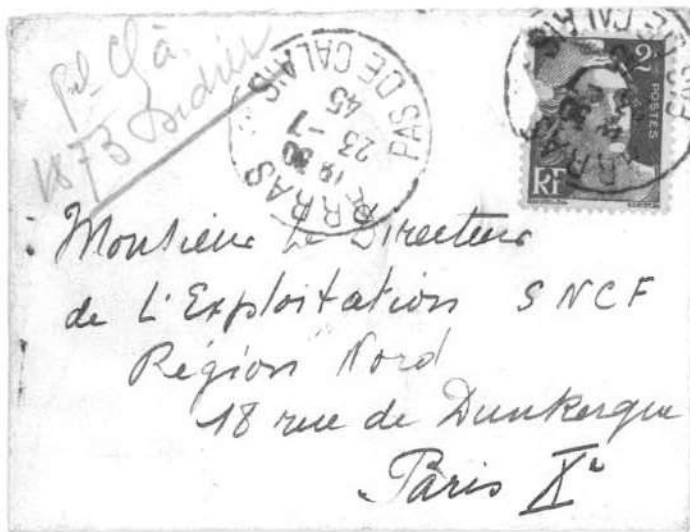 1873 Didier
ARRAS
PAS DE CALAIS
19 30
23 - 7
45
2F
POSTES
RF
ARRAS
PAS DE CALAIS
Monsieur Le Directeur
de L'Exploitation SNCF
Région Nord
18 rue de Dunkerque
Paris Xe